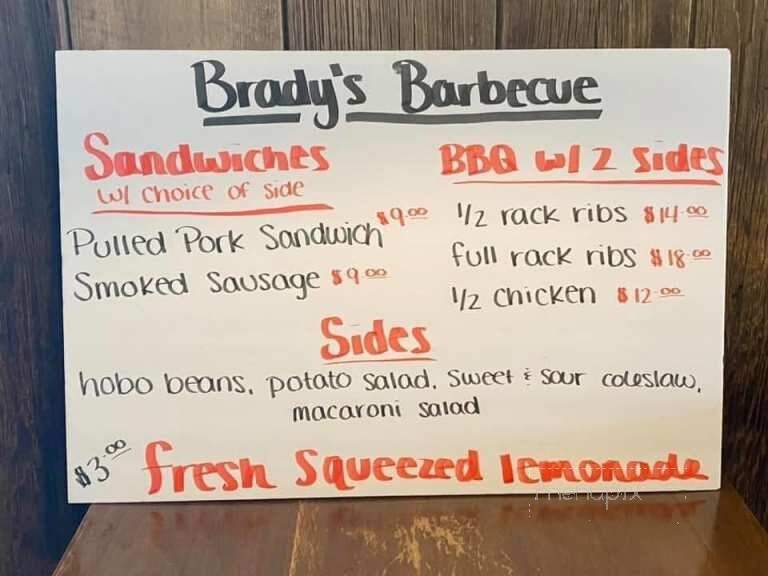 Brady's Barbecue
Sandwiches
w/ choice of side
Pulled Pork Sandwich $9.00
Smoked Sausage $9.00
BBQ w/ 2 sides
1/2 rack ribs $14.00
full rack ribs $18.00
1/2 chicken $12.00
Sides
hobo beans, potato salad, sweet & sour coleslaw,
macaroni salad
$3.00 fresh squeezed lemonade
menupix